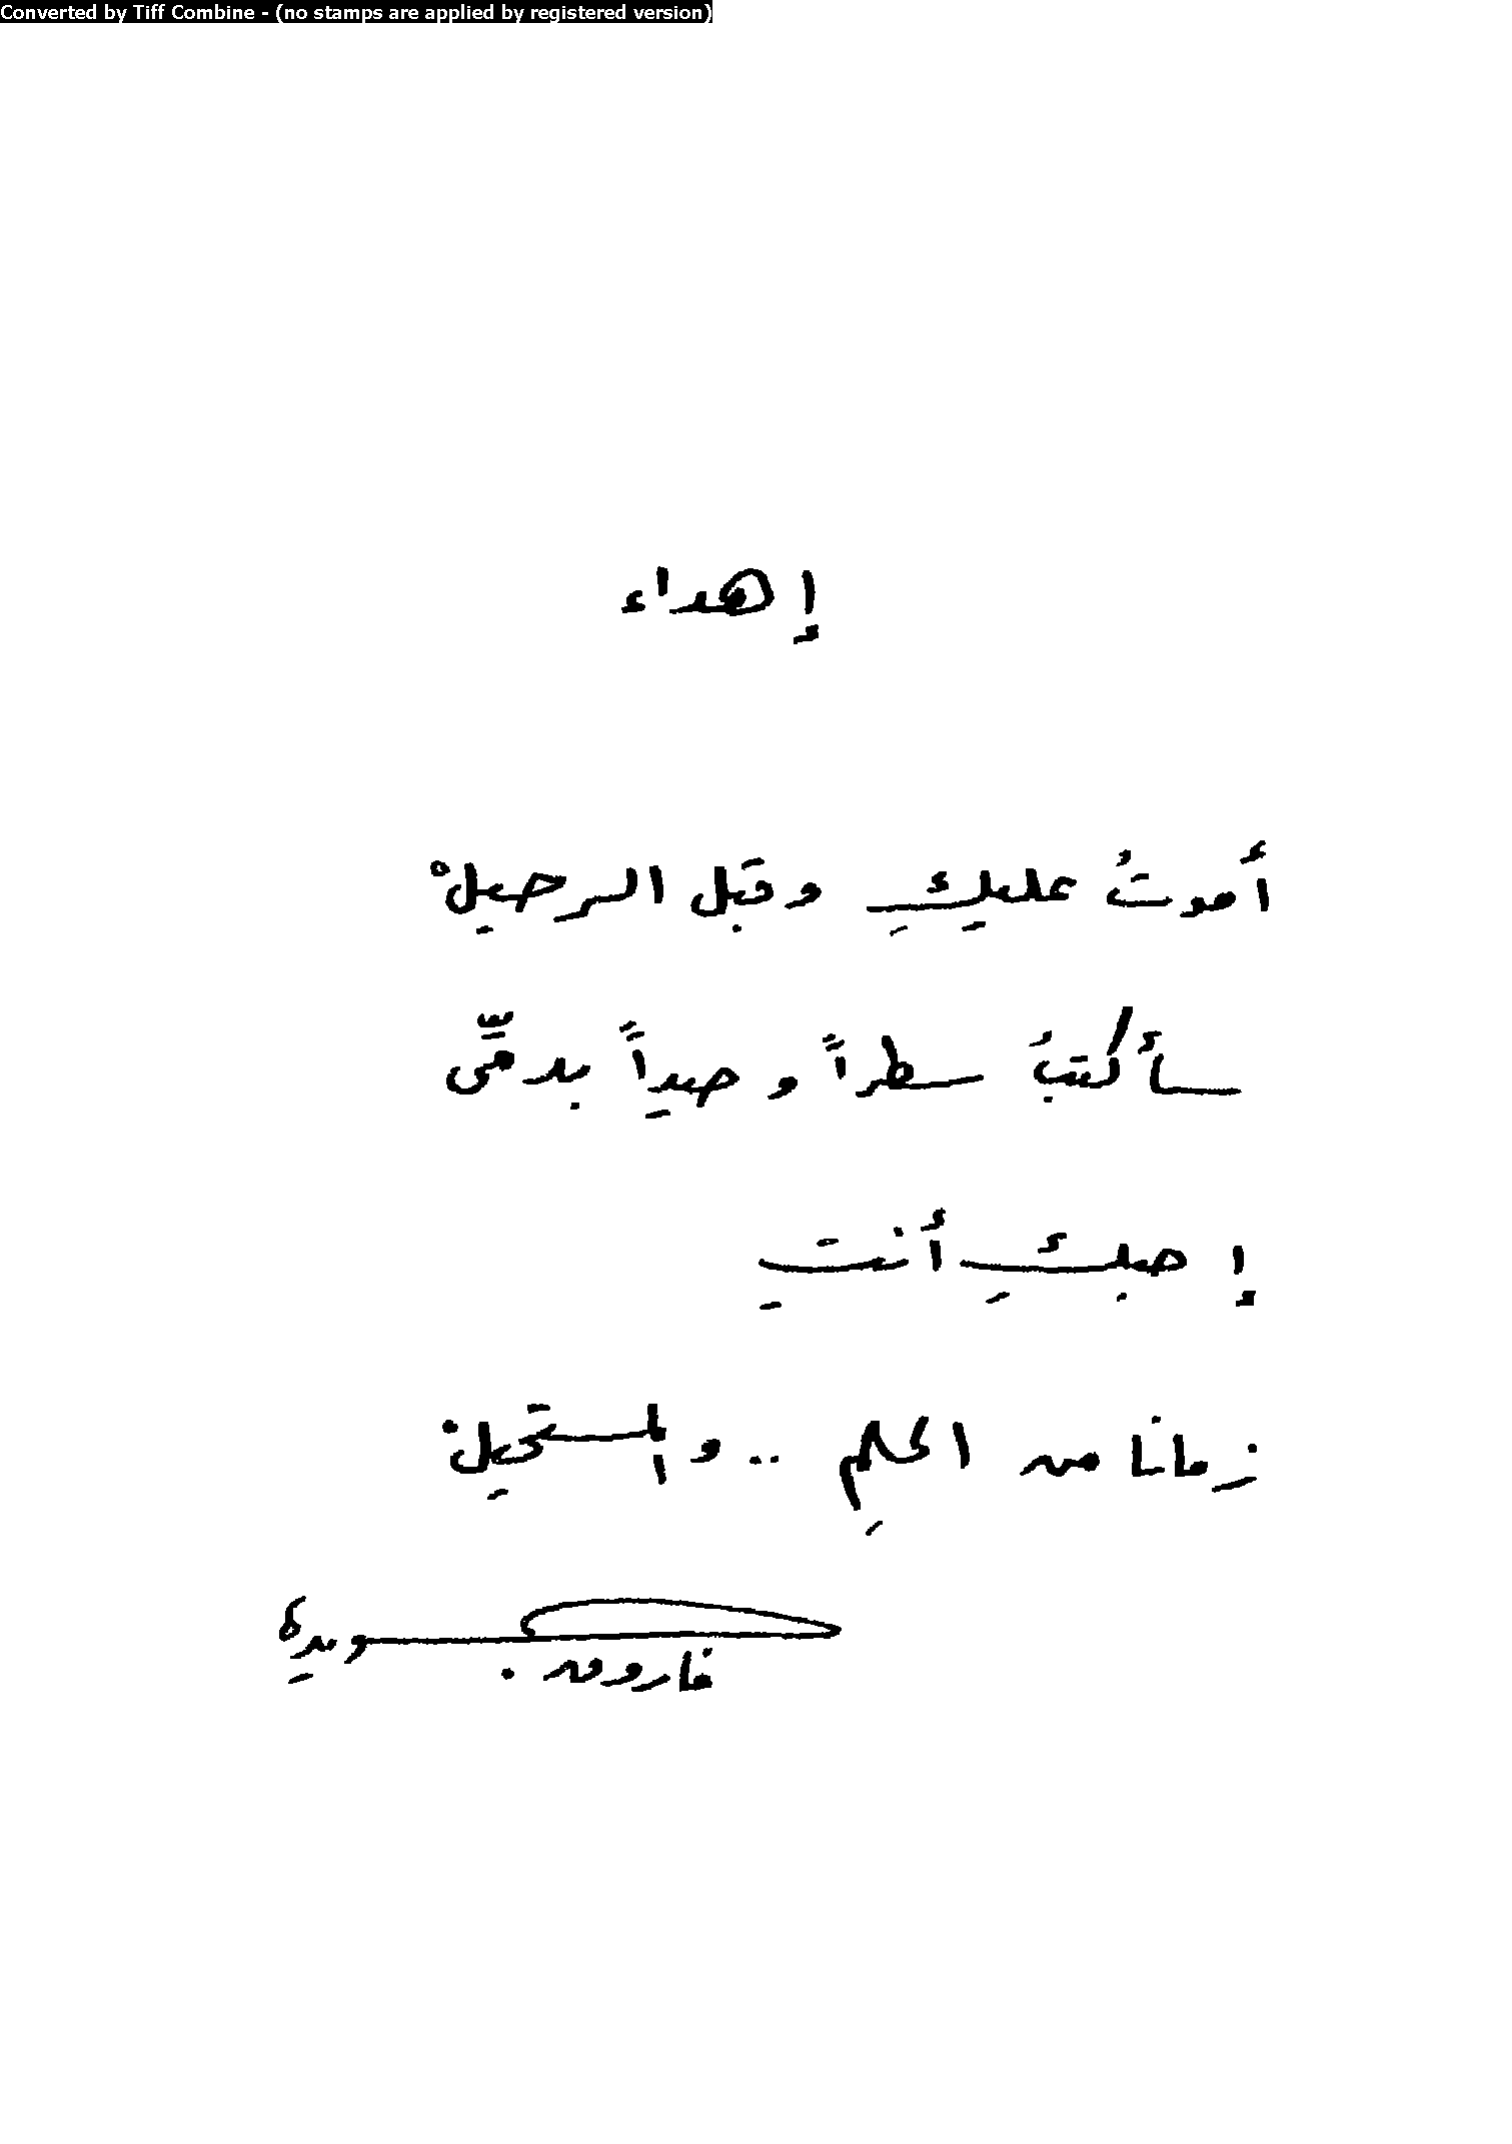 Converted by Tiff Combine - (no stamps are applied by registered version)
إهداء
أموتُ عليكِ وقبل الرحيلْ
سأكتبُ سطراً وحيداً بدمِّى
إحبكِ أنتِ
زمانا من الحلمِ .. والمستحيلْ
فاروق جويدة